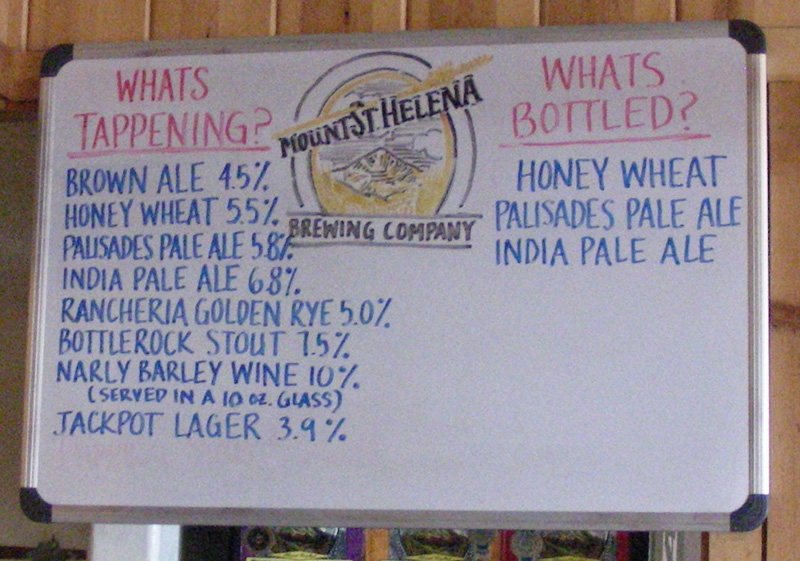 WHATS
TAPPENING?
BROWN ALE 4.5%
HONEY WHEAT 5.5%
PALISADES PALE ALE 5.8%
INDIA PALE ALE 6.8%
RANCHERIA GOLDEN RYE 5.0%
BOTTLEROCK STOUT 7.5%
NARLY BARLEY WINE 10%
(SERVED IN A 10 OZ. GLASS)
JACKPOT LAGER 3.9%
MOUNT ST HELENA
BREWING COMPANY
WHATS
BOTTLED?
HONEY WHEAT
PALISADES PALE ALE
INDIA PALE ALE